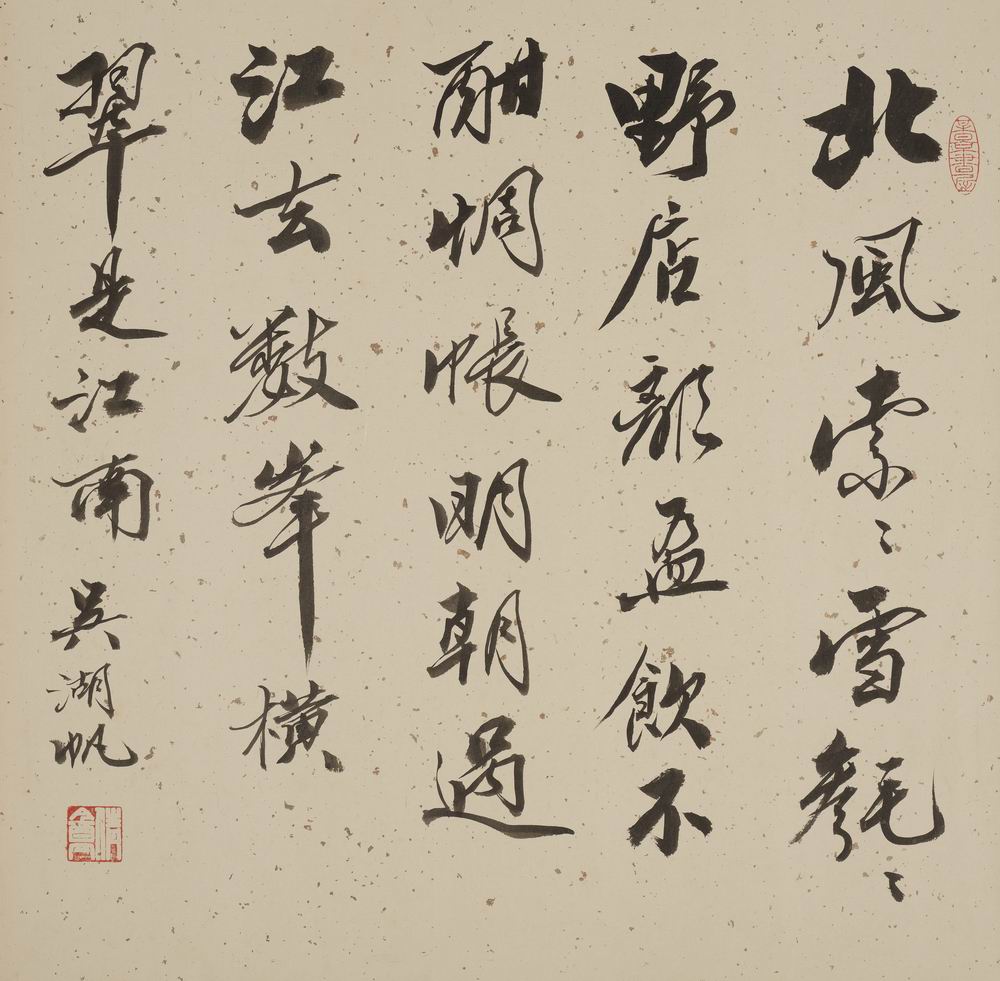 北風索〻雪毿〻
野店顏盃飲不
酣惆悵明朝過
江去數峯橫
翠是江南 吳湖帆